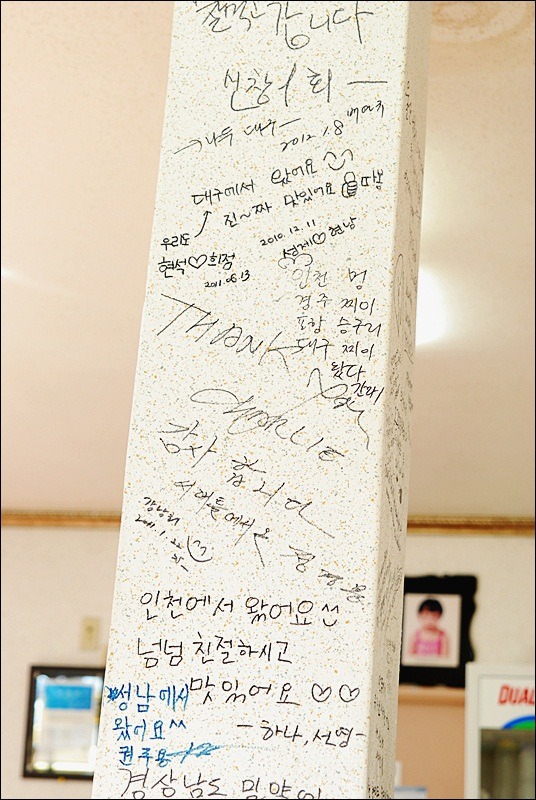 갑니다
신창1회
→나두 대구-
2012.1.8
대구에서 왔어요
진~짜 맛있어요 따봉
우리도
2010.12.11
현석♡희정
성제♡현남
2011.08.13
인천 멍
경주 찌이
포항 승구리
대구 찌이
왔다
간다!
THANK
감사합니다
2011.1.22
인천에서 왔어요
넘넘 친절하시고
맛있어요♡♡
-하나, 선영-
성남에서
왔어요^^
권주용
경상남도 밀양에
DUAL